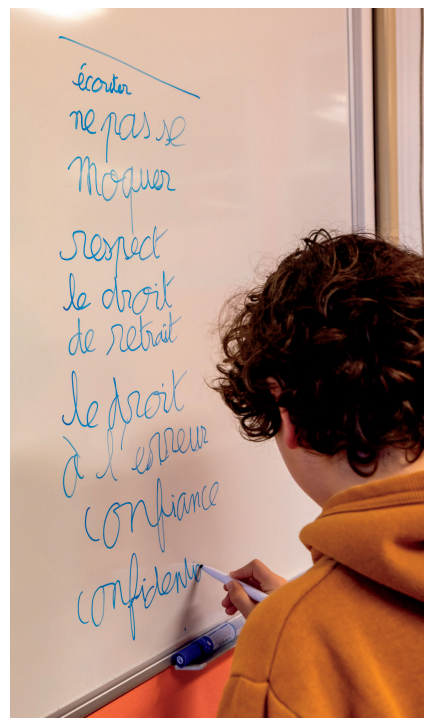 écouter
ne pas se
moquer
respect
le droit
de retrait
le droit
à l'erreur
confiance
confidentia